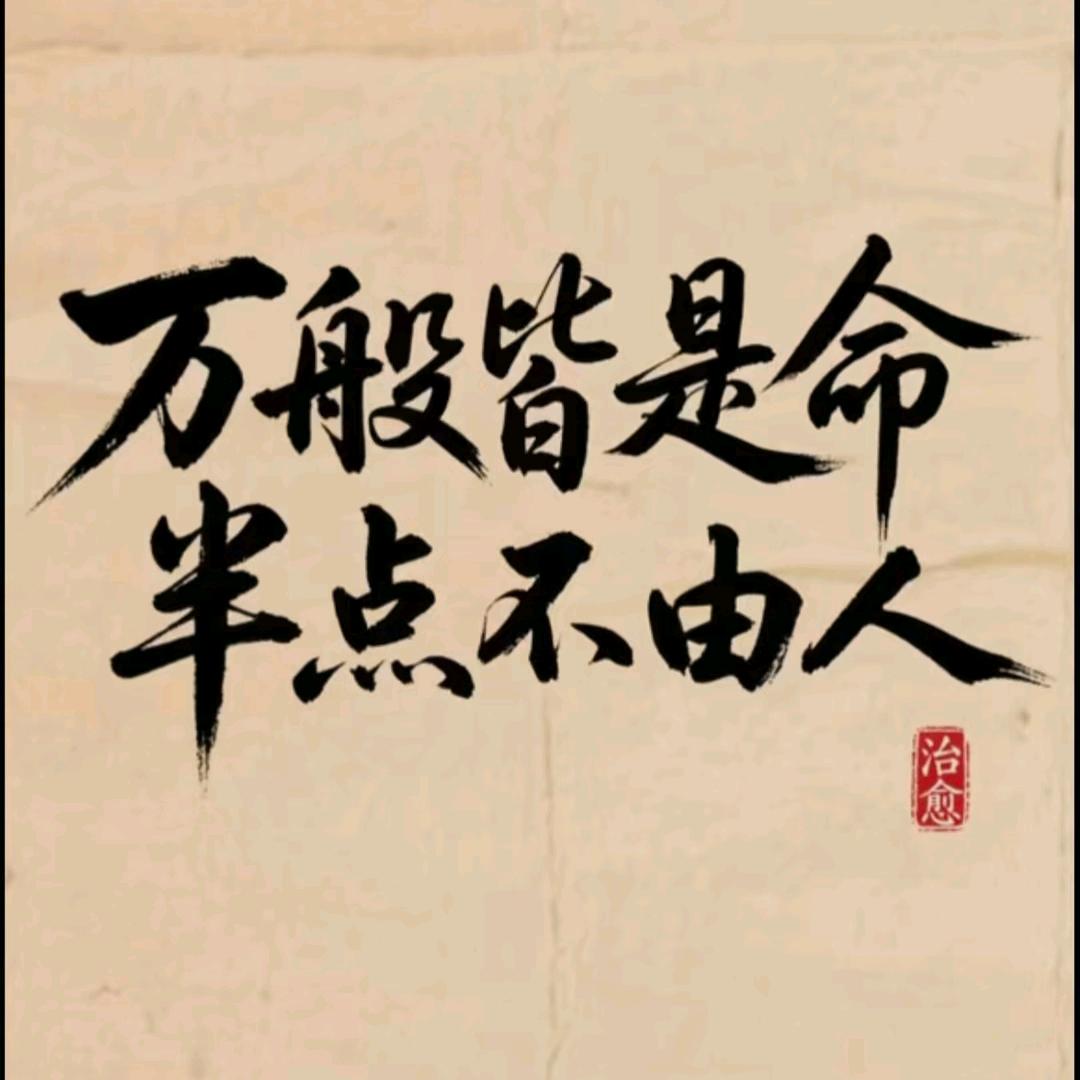 万般皆是命
半点不由人
治愈